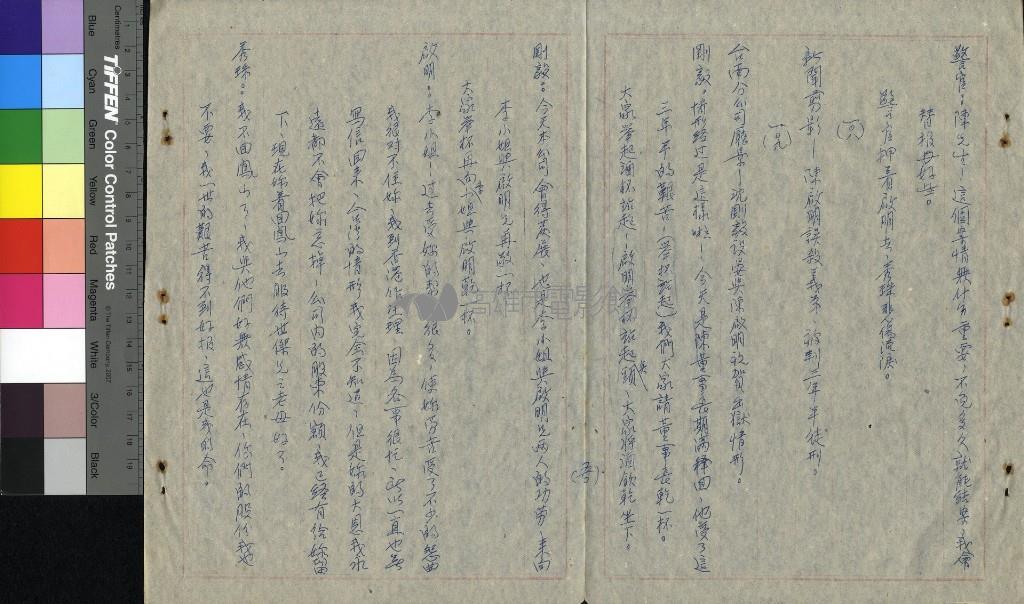 警官:陳先生!這個案情無什麼重要,不免多久就能結案,我會
替報母好些。
鮑警官押着啟明去,秀珠悲傷流淚。
(一八)
新聞剪影—陳啟明誤殺義弟,被判三年半徒刑。
(一九)
台南分公司廳景—沈剛毅設宴與陳啟明祝賀出獄情形。
剛毅:情形經过是這樣啦!今天是陳董事長期滿釋回,他受了這
三年半的艱苦,(舉杯站起)我們大家請董事長乾一杯。
大家举起酒杯站起!(啟明举杯站起)大家將酒飲乾坐下。
剛毅:今天本公司會得發展,也是李小姐與啟明兄兩人的功勞,来向
李小姐與啟明兄再敬一杯
大家举杯再向李小姐與啟明乾杯。
啟明:李小姐!过去受妳的帮忙很多,使妳當苦受了不少的愁曲
我很对不住妳,我到香港作经理,因為各事很忙,所以一直也無
寫信回来,令後的情形我完全不知道,但是妳的大恩我永
遠都不會把妳忘掉,公司內的股東份額,我已經有给妳留
下,現在妳着回鳳山去服侍世傑兄之老母好了。
秀珠:我不回鳳山了,我與他們好無感情存在,你們的股份我也
不要,我一世的艱苦得不到好报,這也是我的命。
Centimetres
TIFFEN Color Control Patches
© The Tiffen Company, 2007
Blue
Cyan
Green
Yellow
Red
Magenta
White
3/Color
Black
高雄市電影館